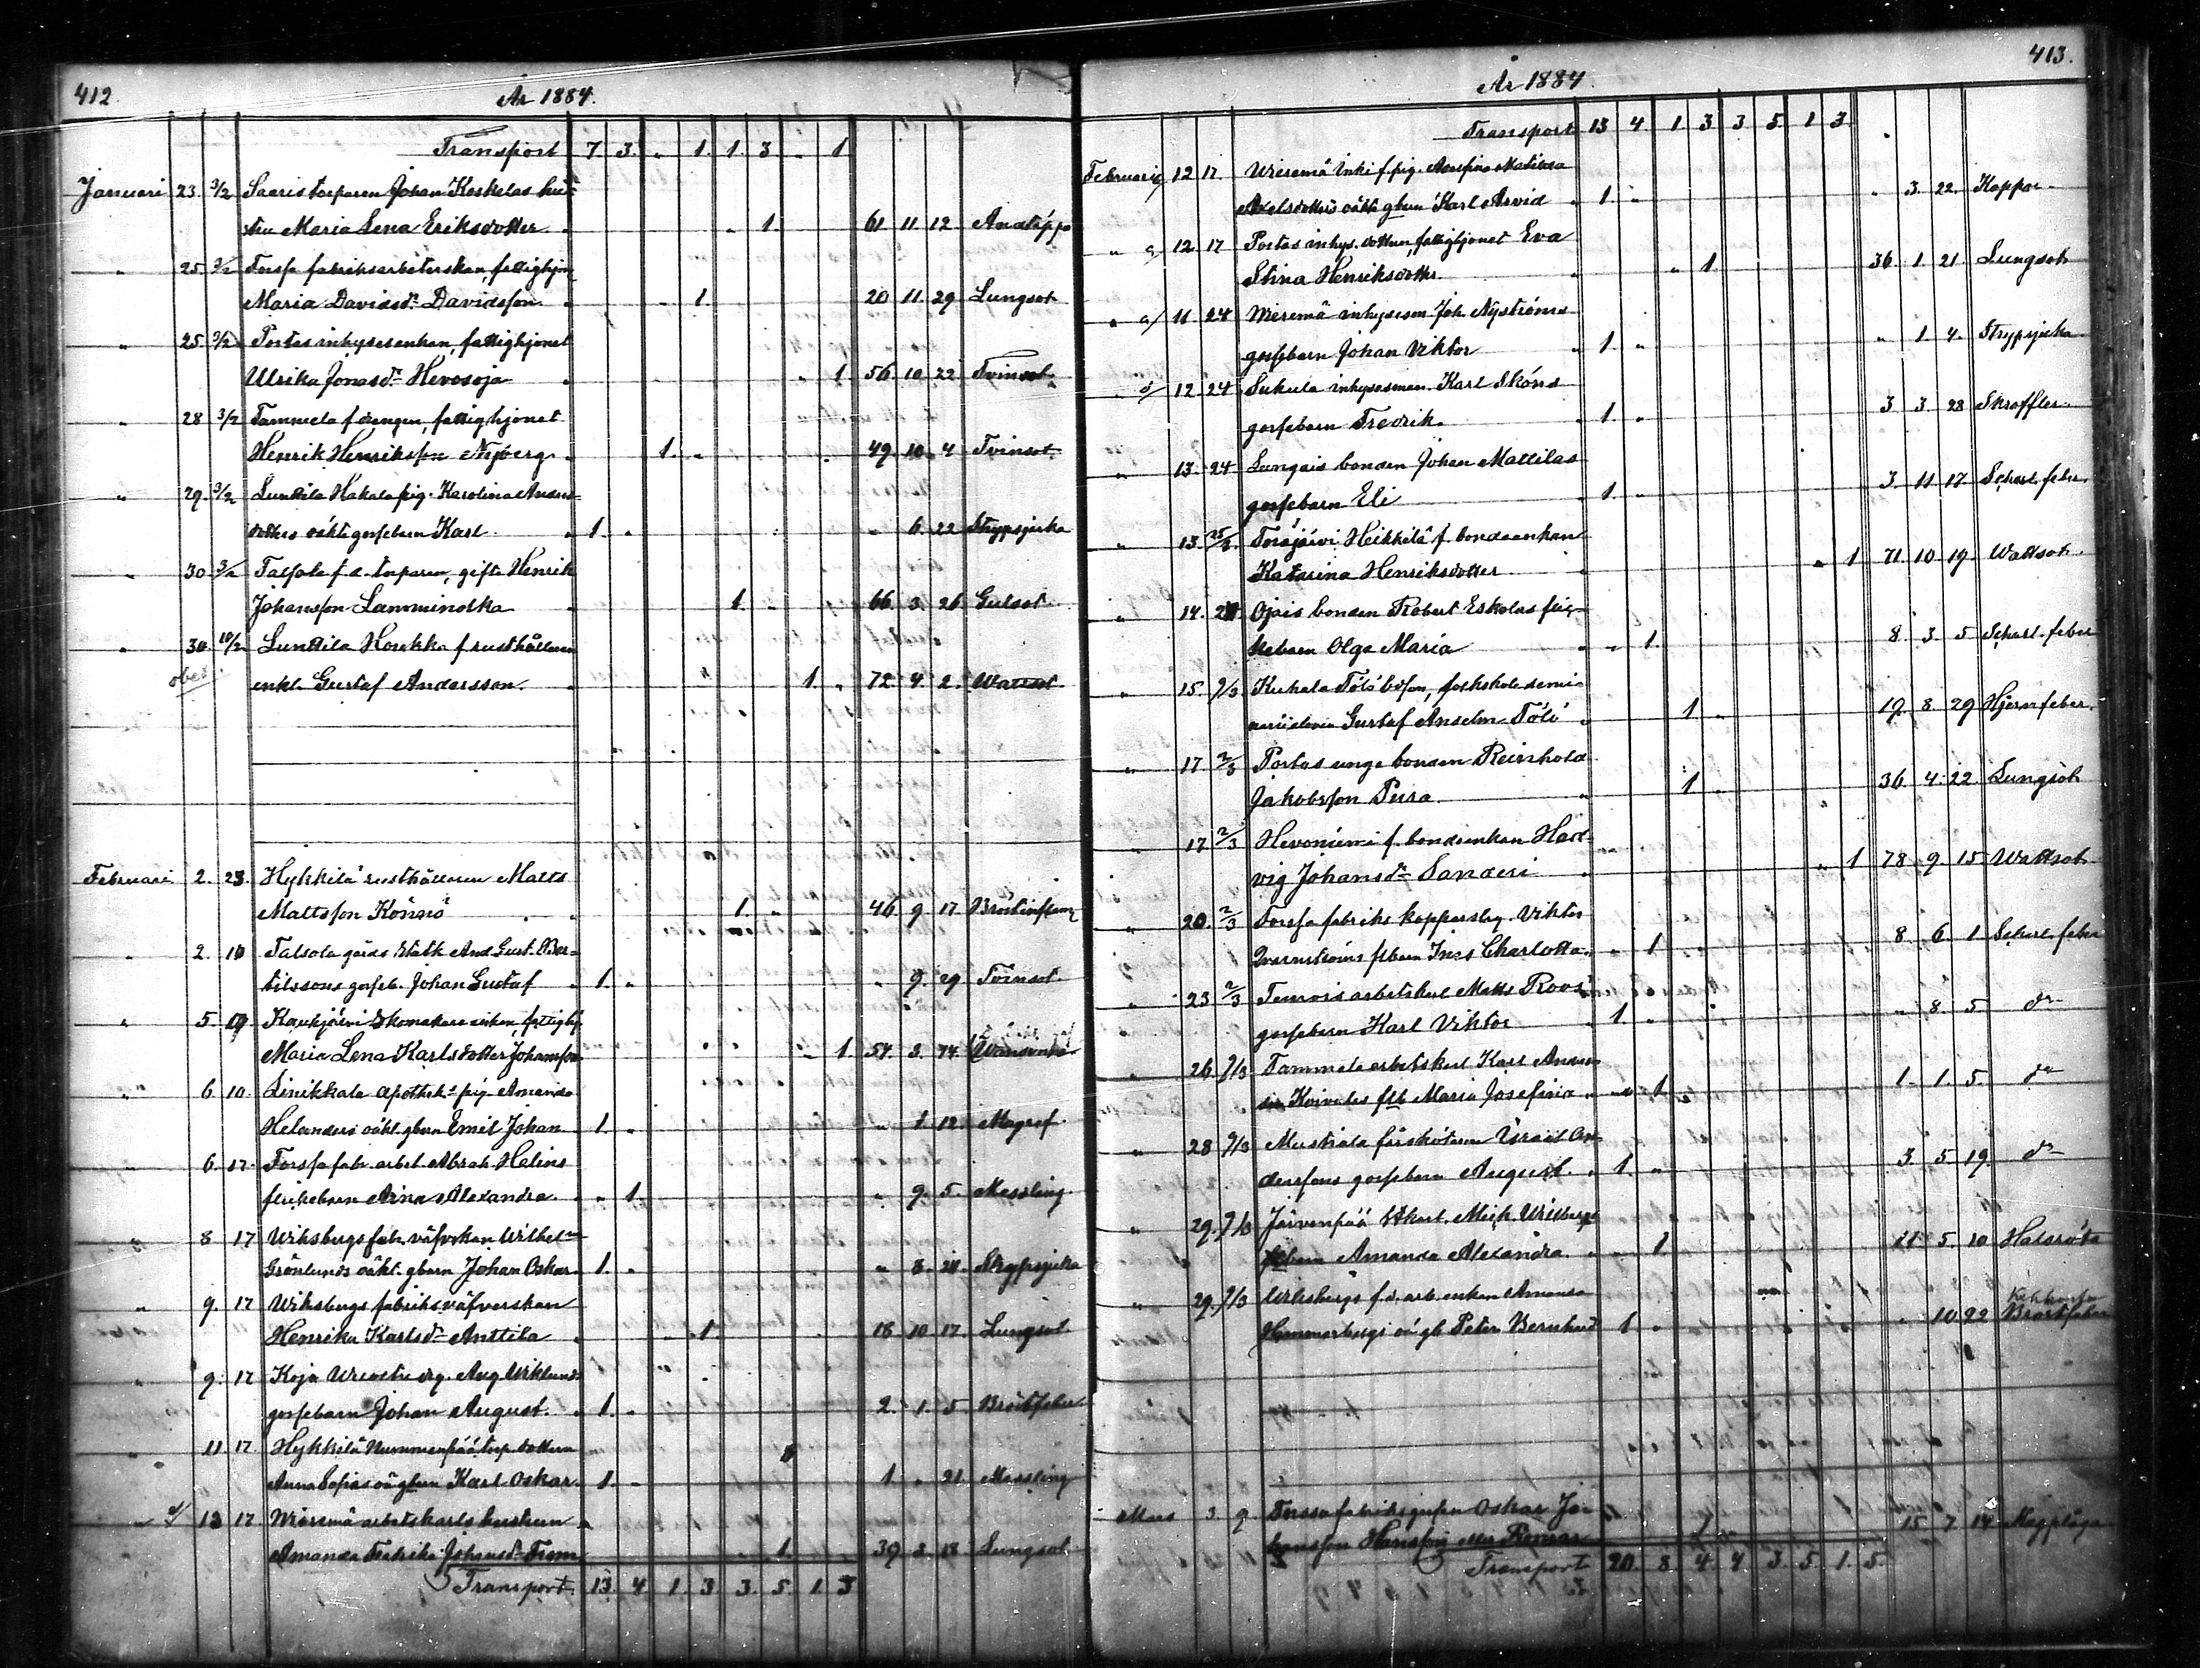 412.
År 1884.
Transport 7. 3. " 1. 1. 3 " 1
Januari 23. 3/2 Saaris torparen Johan Koskelas hus-
tru Maria Lena Eriksdotter " 1. 61 11 12 Andtäppa
" 25. 3/2 Forssa fabriksarbeterskan, fattighjon
Maria Davidsdr Davidsson " 1 20 11 29 Lungsot
" 25. 3/2 Portas inhysesenkan, fattighjonet
Ulrika Jonasdr Hevosoja " 1 56 10 22 Tvinsot
" 28 3/2 Tammela f drengen, fattighjonet
Henrik Henriksson Nyberg 1. " 49 10 4 Tvinsot
" 29. 3/2 Lunkila Hakala pig. Karolina Anders-
dotters oäkta gossebarn Karl " 1. " " 6 22 Strypsjuka
" 30 3/2 Talsola f.d. torparen, gifte Henrik
Johansson Lamminoka 1. " 66 3. 26 Gulsot
" 30. 10/2 Lunkila Houkka f rusthållaren
enkl. Gustaf Andersson. 1. " 72 4 2. Wattsot
Februari 2. 23. Hykkilä rusthållaren Matts
Mattsson Könnö 1. " 46 9 17 Bröstinflam
" 2. 10 Talsola gårds statk And. Gust. Ber-
tilssons gosseb. Johan Gustaf " 1. " " 9. 29 Tvinsot
" 5. 10 Kaukjärvi skomakare enkan, fattighj.
Maria Lena Karlsdotter Johansson " 1. 54. 3. 14
" 6 10. Linikkala apothek. pig. Amanda
Helanders oäkt. gbarn Emil Johan 1. " " 1 12 Magref
" 6. 17. Forssa fabr. arbet. Abrah. Helins
flickebarn Aina Alexandra " 1. " 9. 5. Messling
" 8 17 Wiksbergs fabr. väfverskan Wilhelm
Grönlunds oäkt. gbarn Johan Oskar 1. " " 3. Strypsjuka
" 9. 17 Wiksbergs fabriks väfverskan
Henrika Karlsdr Anttila " 1 18 10 17. Lungsot
" 9. 17 Koja Aug. Wiklunds
gossebarn Johan August. " 1. " 2. 1. 5 Bröstfeber
" 11 17. Hykkilä Nummenpää torp. dottern
Anna Sofias oä gbarn Karl Oskar. 1. " 1 " 21. Messling
" 13 17 Wieremä arbetskarls hustrun
Amanda Fredrika Johansdr " 1. 39 3. 18 Lungsot
Transport 13. 4. 1. 3. 3. 5. 1. 3
413.
År 1884.
Transport 13 4. 1 3 3 5. 1 3.
Februari 12 17. Wieremä Inki f.pig. Matilda
Axelsdotters oäkta gbarn Karl Arvid " 1. " " 3. 22. Koppor
" 12. 17 Portas inhys. dottern, fattighjonet Eva
Stina Henriksdotter " 1 36. 1. 21. Lungsot
" 11 24 Wieremä inhysesm Joh. Nyströms
gossebarn Johan Viktor " 1. " " 1 4. Strypsjuka
" 12. 24 Sukula inhysesman Karl Sköns
gossebarn Fredrik. " 1. " 3 3. 28 Skroffler.
" 13. 24 Lungais bonden Johan Mattilas
gossebarn Eli " 1. " 3. 11 17 Scharl. feber.
" 13. 25/2. Torajärvi Heikkilä f. bondeenkan
Katarina Henriksdotter " 1 71 10 19 Wattsot
" 14. Ojais bonden Robert Eskolas flic-
kebarn Olga Maria " " 1. 8. 3. 5 Scharl. feber
" 15. 2/3 Kuhala Tölö bdson, folkskolesemi-
naristen Gustaf Anselm Tölö " 1 " 19. 8. 29 Hjernfeber.
" 17. 2/3 Portas unge bonden Reinhold
Jakobsson Pura " 1 " 36 4. 22. Lungsot
" 17 2/3 Hevoniemi f. bondeenkan Hed-
vig Johansdr Sanderi " 1 78. 9. 15 Wattsot
" 20. 2/3 Forssa fabriks kopparslag. Viktor
Qvarnströms flbarn Ines Charlotta " " 1 8. 6. 1 Scharl. feber
" 23 2/3 Temrois arbetskarl Matts Roos'
gossebarn Karl Viktor " 1 " " 8. 5 do
" 26. 9/3 Tammela arbetskarl Karl Anders-
son Koivulas flb Maria Josefina " " 1. 1. 1. 5. do
" 28 9/3 Mustiala fårskötaren Israel An-
derssons gossebarn August. " 1. " 3. 5 19. do
" 29. 9/3 Järvenpää Mick.
flbarn Amanda Alexandra. " " 1 11. 5. 10 Halsröta
" 29. 9/3 Wiksbergs f.d. arb. enkan Amanda
Hammarbergs oä gb Peter Bernhard 1 " " 10 22 Kikhosta Bröstfeber
Mars 3. 9. Forssa fabriksgossen Oskar Ja-
kobsson Hansson eller 1 15 7 14 Magplåga
Transport 20. 8. 4. 4. 3. 5. 1. 5.